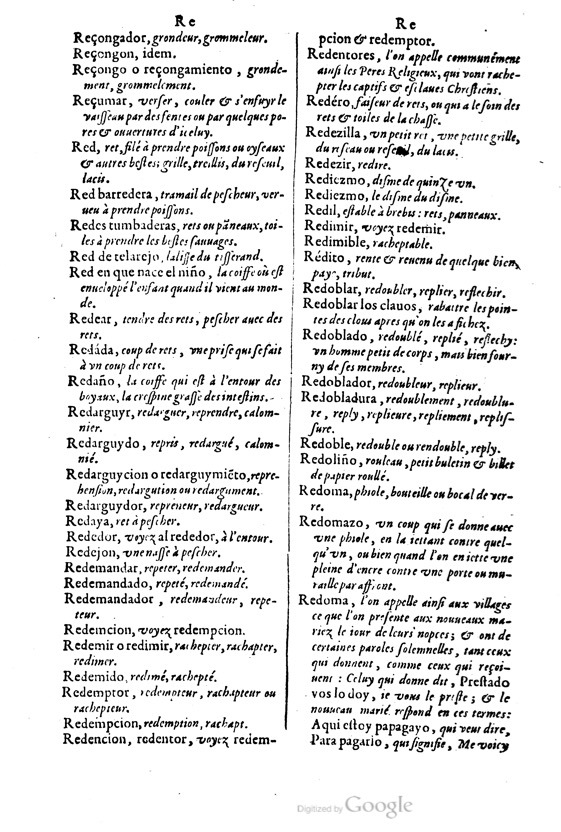 Re
Reçongador, grondeur, grommeleur.
Reçongon, idem.
Reçongo o reçongamiento, gronde-
ment, grommelement.
Reçumar, verser, couler & s'enfuyr le
vaisseau par des fentes ou par quelques po-
res & ouuertures d'iceluy.
Red, ret, filé à prendre poissons ou oyseaux
& autres bestes: grille, treillis, du reseuil,
lacis.
Red barredera, tramail de pescheur, ver-
ueu à prendre poissons.
Redes tumbaderas, rets ou pāneaux, toi-
les à prendre les bestes sauuages.
Red de telarejo, la lisse du tisserand.
Red en que nace el niño, la coiffe où est
enueloppé l'enfant quand il vient au mon-
de.
Redear, tendre des rets, pescher auec des
rets.
Redáda, coup de rets, vne prise qui se fait
à vn coup de rets.
Redaño, la coiffe qui est à l'entour des
boyaux, la crespine grasse des intestins.
Redarguyr, redarguer, reprendre, calom-
nier.
Redarguydo, repris, redargué, calom-
nié.
Redarguycion o redarguymiēto, repre-
hension, redargution ou redargument.
Redarguydor, repreneur, redargueur.
Redaya, ret à pescher.
Rededor, voyez al rededor, à l'entour.
Redejon, vne nasse à pescher.
Redemandar, repeter, redemander.
Redemandado, repeté, redemandé.
Redemandador, redemandeur, repe-
teur.
Redemcion, voyez redempcion.
Redemir o redimir, rachepter, rachapter,
redimer.
Redemido, redimé, rachepté.
Redemptor, redempteur, rachapteur ou
rachepteur.
Redempcion, redemption, rachapt.
Redencion, redentor, voyez redem-
Re
pcion & redemptor.
Redentores, l'on appelle communément
ainsi les Peres Religieux, qui vont rache-
pter les captifs & esclaues Chrestiens.
Redéro, faiseur de rets, ou qui a le soin des
rets & toiles de la chasse.
Redezilla, vn petit ret, vne petite grille,
du reseau ou reseuil, du lacis.
Redezir, redire.
Redieczmo, disme de quinze vn.
Rediezmo, le disme du disme.
Redil, estable à brebis: rets, panneaux.
Redimir, voyez redemir.
Redimible, racheptable.
Rédito, rente & reuenu de quelque bien,
paye, tribut.
Redoblar, redoubler, replier, reflechir.
Redoblar los clauos, rabattre les poin-
tes des clous apres qu'on les a fichez.
Redoblado, redoublé, replié, reflechy:
vn homme petit de corps, mais bien four-
ny de ses membres.
Redoblador, redoubleur, replieur.
Redobladura, redoublement, redoublu-
re, reply, replieure, repliement, replis-
sure.
Redoble, redouble ou rendouble, reply.
Redoliño, rouleau, petit buletin & billet
de papier roullé.
Redoma, phiole, bouteille ou bocal de ver-
re.
Redomazo, vn coup qui se donne auec
vne phiole, en la iettant contre quel-
qu'vn, ou bien quand l'on en iette vne
pleine d'encre contre vne porte ou mu-
raille par affront.
Redoma, l'on appelle ainsi aux villages
ce que l'on presente aux nouueaux ma-
riez le iour de leurs nopces; & ont de
certaines paroles solemnelles, tant ceux
qui donnent, comme ceux qui reçoi-
uent: Celuy qui donne dit, Prestado
vos lo doy, ie vous le preste; & le
nouueau marié respond en ces termes:
Aqui estoy papagayo, qui veut dire,
Para pagarlo, qui signifie, Me voicy
Digitized by Google